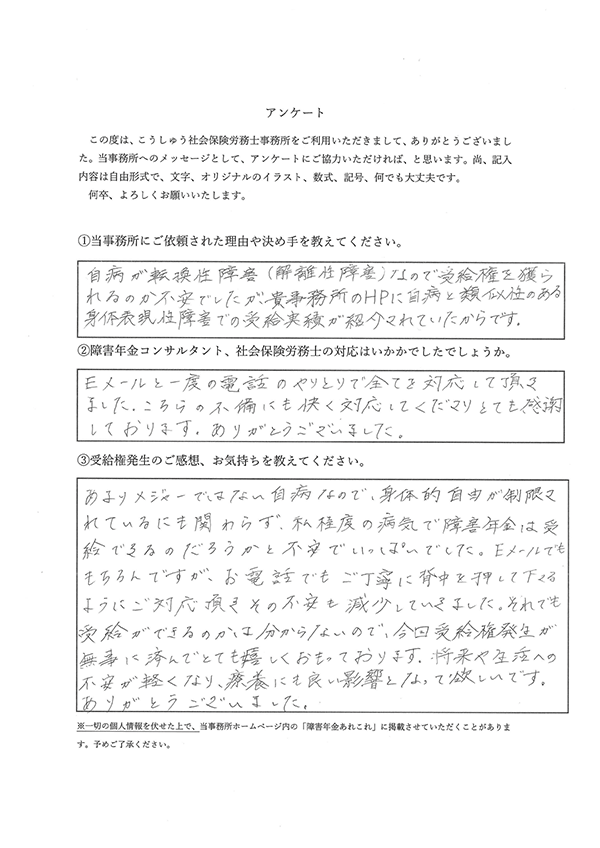 アンケート
この度は、こうしゅう社会保険労務士事務所をご利用いただきまして、ありがとうございまし
た。当事務所へのメッセージとして、アンケートにご協力いただければ、と思います。尚、記入
内容は自由形式で、文字、オリジナルのイラスト、数式、記号、何でも大丈夫です。
何卒、よろしくお願いいたします。
①当事務所にご依頼された理由や決め手を教えてください。
自病が転換性障害(解離性障害)なので受給権を獲ら
れるのか不安でしたが、貴事務所のHPに自病と類似性のある
身体表現性障害での受給実績が紹介されていたからです。
②障害年金コンサルタント、社会保険労務士の対応はいかかでしたでしょうか。
Eメールと一度の電話のやりとりで全てを対応して頂き
ました。こちらの不備にも快く対応してくださりとても感謝
しております。ありがとうございました。
③受給権発生のご感想、お気持ちを教えてください。
あまりメジャーではない自病なので、身体的自由が制限さ
れているにも関わらず、私程度の病気で障害年金は受
給できるのだろうかと不安でいっぱいでした。Eメールでも
もちろんですが、お電話でもご丁寧に背中を押して下さる
ようにご対応頂きその不安も減少していきました。それでも
受給ができるのかは分からないので、今回受給権発生が
無事に済んでとても嬉しくおもっております。将来や生活への
不安が軽くなり、療養にも良い影響となって欲しいです。
ありがとうございました。
※一切の個人情報を伏せた上で、当事務所ホームページ内の「障害年金あれこれ」に掲載させていただくことがありま
す。予めご了承ください。